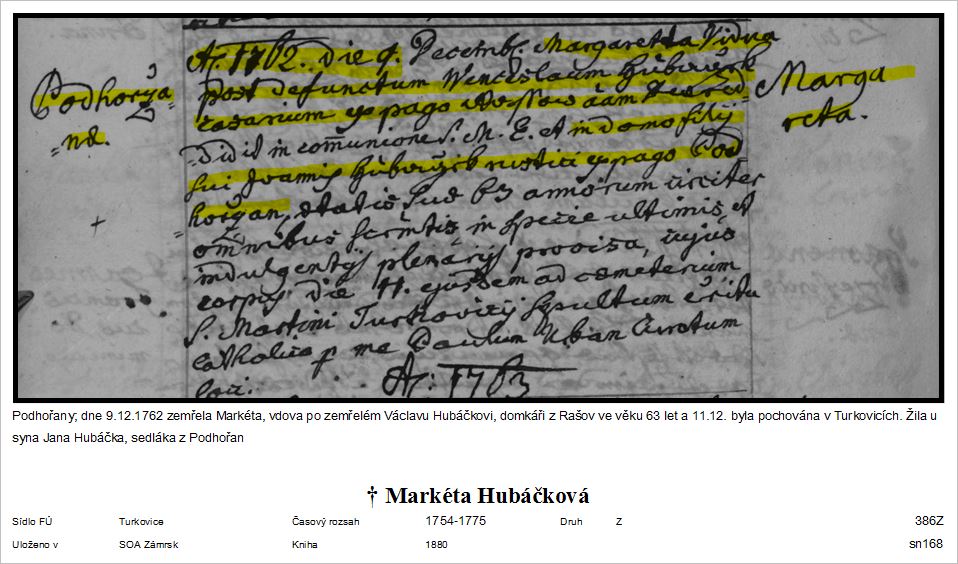 Podhorža=
=nd.
Marga
reta.
A. 1762. die 9. Decemb. Margaretta Vidua
post defunctum Wenceslaum Hubaczk
casarium ex pago
didit in comūnione S. M. E. et in domo filÿ
sui Joannis Hubaczk rustici ex pago Pod
horžan, ætatis suæ 63 annorum circiter
omnibus Scrmtis in specie ultimis, et
indulgentÿs plenarÿs provisa, cujus
corpus die 11. ejusdem ad cæmeterium
S. Martini Turkovicÿ sepultum e ritu
catholico p me Paulum Urban Curatum
loci.
A: 1763
Podhořany; dne 9.12.1762 zemřela Markéta, vdova po zemřelém Václavu Hubáčkovi, domkáři z Rašov ve věku 63 let a 11.12. byla pochována v Turkovicích. Žila u
syna Jana Hubáčka, sedláka z Podhořan
† Markéta Hubáčková
Sídlo FÚ Turkovice Časový rozsah 1754-1775 Druh Z 386Z
Uloženo v SOA Zámrsk Kniha 1880 sn168